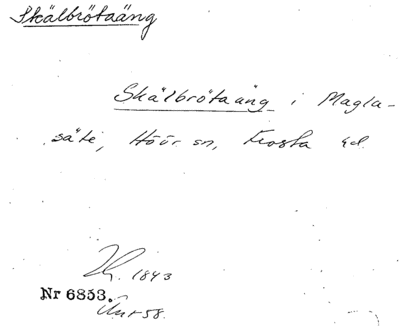 Skälbrötaäng
Skälbrötaäng i Magla-
säte, Höör sn, Frosta hd.
1843
Nr 6853.